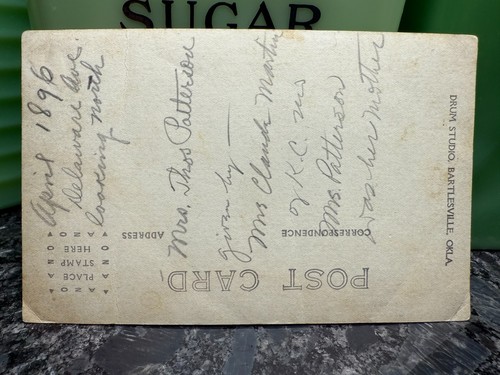 SUGAR
April 1896
Delaware Ave.
looking north
Mrs. Thos Patterson
given by —
Mrs Claude Martin
of K.C. mo
Mrs. Patterson
was her mother
POST CARD
CORRESPONDENCE
ADDRESS
PLACE
STAMP
HERE
DRUM STUDIO, BARTLESVILLE, OKLA.